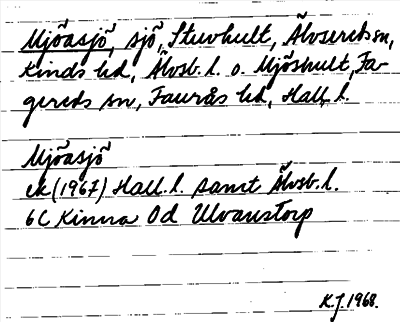 Mjöasjö, sjö, Stuvhult, Älvsereds sn,
Kinds hd, Älvsb. l. o. Mjöshult, Fa-
gereds sn, Faurås hd, Hall. l.
Mjöasjö
ek (1967) Hall. l. samt Älvsb. l.
6C Kinna 0d Ulvanstorp
K.J. 1968.